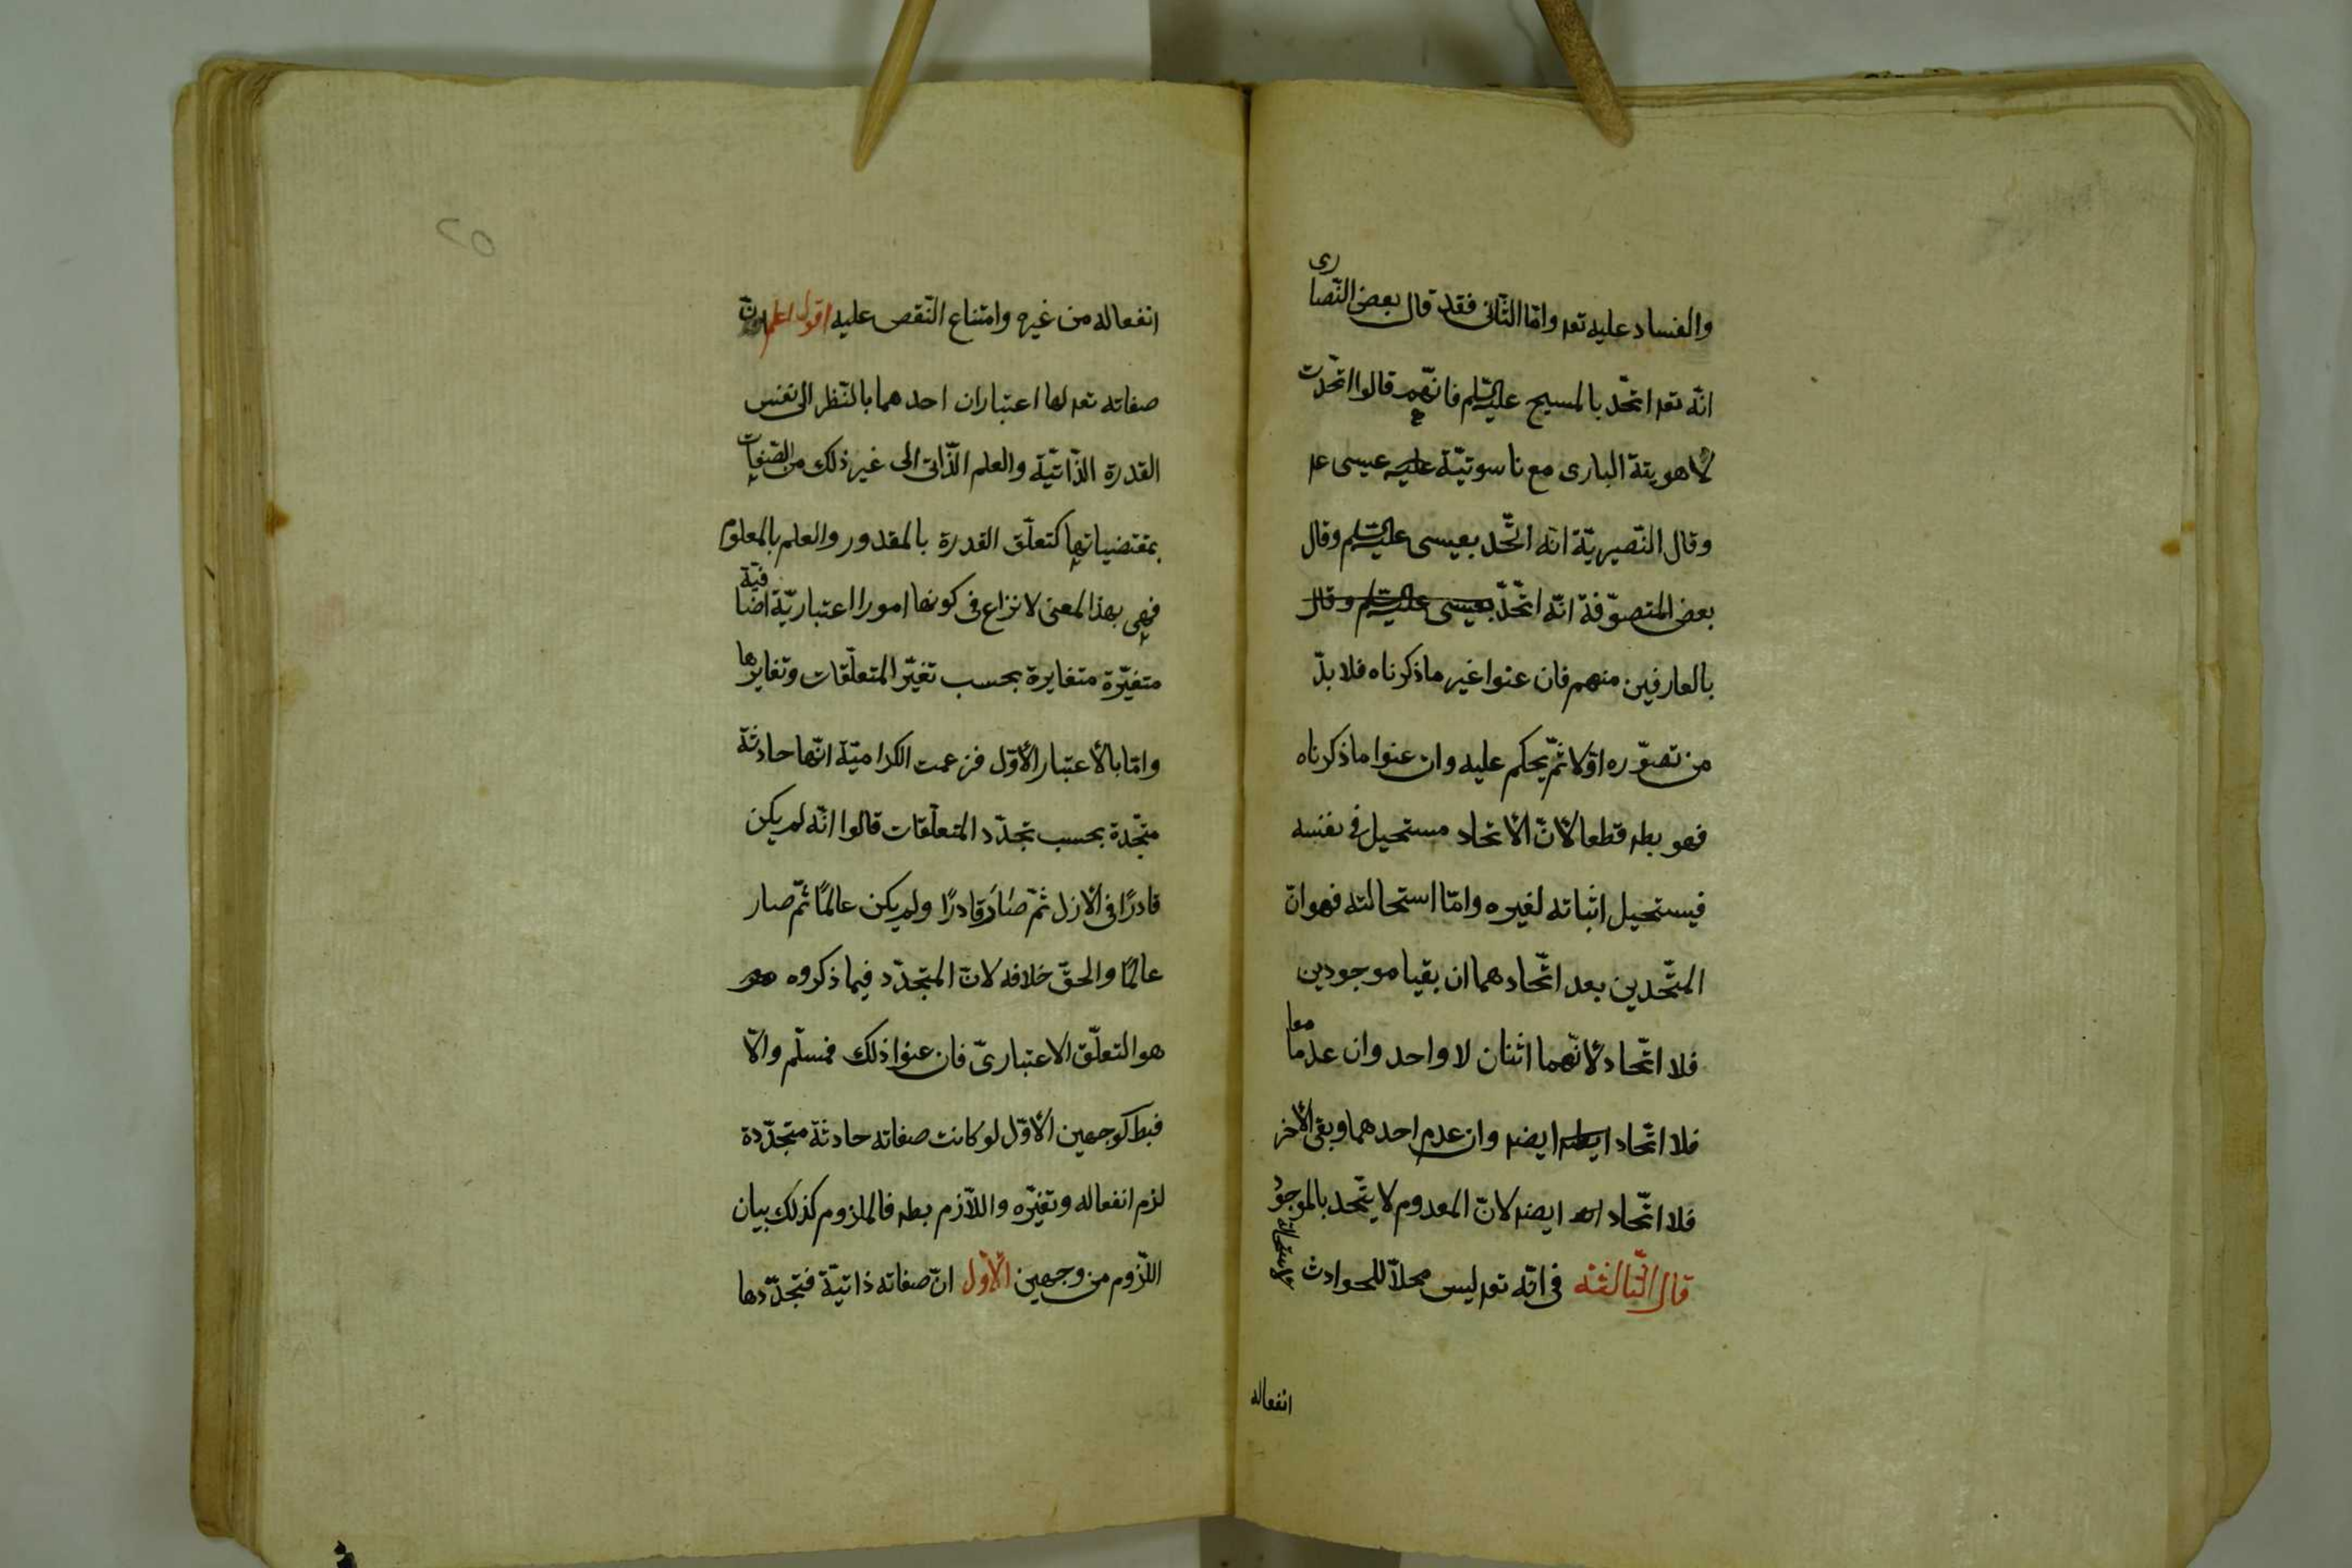 والفساد عليه تعه وامّا الثّانى فقد قال بعض النّصارى
انّه تعه اتّحد بالمسيح عليه السّلم فانّهم قالوا اتّحدت
لاهويتة البارى مع ناسوتيّة عليه عيسى عه
وقال النّصيريّة انّه اتّحد بعيسى عليه السّلم وقال
بعض المتصوّفة انّه اتّحد بعيسى عليه السّلم وقال
بالعارفين منهم فان عنوا غير ما ذكرناه فلا بدّ
من تصوّره اوّلا ثمّ يحكم عليه وان عنوا ما ذكرناه
فهو بطه قطعا لأنّ الأتحاد مستحيل فى نفسه
فيستحيل اثباته لغيره وامّا استحالته فهو انّ
المتّحدين بعد اتّحادهما ان بقيا موجودين
فلا اتّحاد لأنّهما اثنان لا واحد وان عدما معا
فلا اتّحاد ايضه وان عدم احدهما وبقى الأخر
فلا اتّحاد ايضه لانّ المعدوم لا يتّحد بالموجود
قال الثّالثة فى انّه تعه ليس محلاّ للحوادث لاستحالة
انفعاله
انفعاله من غيره وامتناع النّقص عليه اقول اعلم انّ
صفاته تعه لها اعتباران احدهما بالنّظر الى نفس
القدرة الذّاتيّة والعلم الذّاتى الى غير ذلك من الصّفات
بمقتضياتها كتعلّق القدرة بالمقدور والعلم بالمعلوم
فهى بهذا المعنى لا نزاع فى كونها امورا اعتباريّة اضافيّة
متغيّرة متغايرة بحسب تغيّر المتعلّقات وتغايرها
وامّا بالأعتبار الأوّل فزعمت الكراميّة انّها حادثة
متجّدة بحسب تجدّد المتعلّقات قالوا انّه لم يكن
قادرًا فى الأزل ثمّ صار قادرًا ولم يكن عالمًا ثمّ صار
عالمًا والحقّ خلافه لانّ المتجدّد فيما ذكروه هو
هو التعلّق الاعتبارىّ فان عنوا ذلك فمسلّم والاّ
فبطه لوجهين الأوّل لو كانت صفاته حادثة متجدّدة
لزم انفعاله وتغيّره واللاّزم بطه فالملزوم كذلك بيان
اللّزوم من وجهين الأوّل انّ صفاته ذاتيّة فتجدّدها